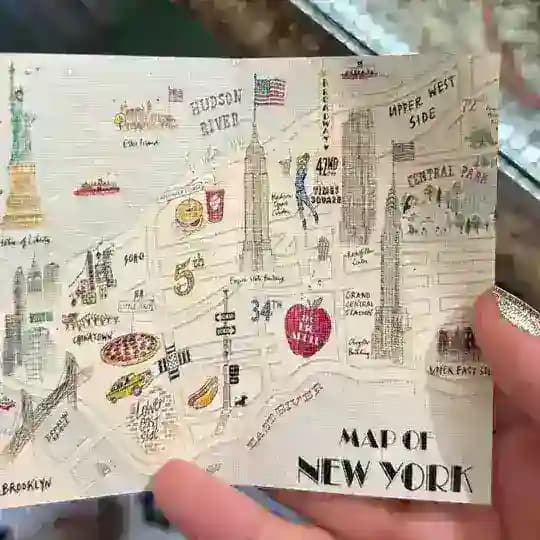 HUDSON
RIVER
BROADWAY
UPPER WEST
SIDE
72
Ellis Island
42ND
TIMES
SQUARE
Madison
Square
Garden
CENTRAL PARK
Statue of Liberty
SOHO
5th
Empire State Building
Rockefeller
Center
LITTLE ITALY
CHINATOWN
34TH
THE
BIG
APPLE
GRAND
CENTRAL
STATION
Chrysler
Building
UPPER EAST SIDE
Lower
east
side
EAST RIVER
BROOKLYN
MAP OF
NEW YORK